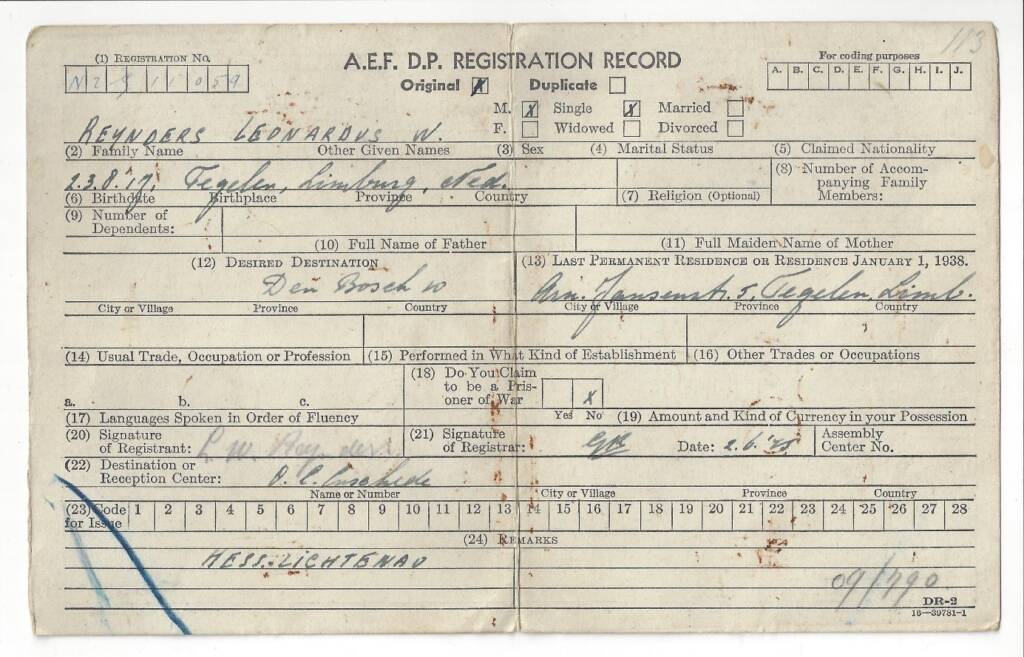 113
(1) REGISTRATION No.
A.E.F. D.P. REGISTRATION RECORD
For coding purposes
Original X Duplicate
A. B. C. D. E. F. G. H. I. J.
M. X Single X Married
F. Widowed Divorced
REYNDERS LEONARDUS W.
(2) Family Name Other Given Names (3) Sex (4) Marital Status (5) Claimed Nationality
23.8.17, Tegelen, Limburg, Ned.
(6) Birthdate Birthplace Province Country (7) Religion (Optional) (8) Number of Accompanying Family Members:
(9) Number of Dependents:
(10) Full Name of Father (11) Full Maiden Name of Mother
(12) DESIRED DESTINATION (13) LAST PERMANENT RESIDENCE OR RESIDENCE JANUARY 1, 1938.
Den Bosch Arn. Jansenstr. 5, Tegelen, Limb.
City or Village Province Country City or Village Province Country
(14) Usual Trade, Occupation or Profession (15) Performed in What Kind of Establishment (16) Other Trades or Occupations
(18) Do You Claim to be a Prisoner of War X
a. b. c. Yes No
(17) Languages Spoken in Order of Fluency (19) Amount and Kind of Currency in your Possession
(20) Signature of Registrant: L. W. Reynders (21) Signature of Registrar: Date: 2.6.'45 Assembly Center No.
(22) Destination or Reception Center: O.C. Enschede
Name or Number City or Village Province Country
(23) Code for Issue 1 2 3 4 5 6 7 8 9 10 11 12 13 14 15 16 17 18 19 20 21 22 23 24 25 26 27 28
(24) REMARKS
HESS. LICHTENAU
09/790
DR-2
16—39781-1